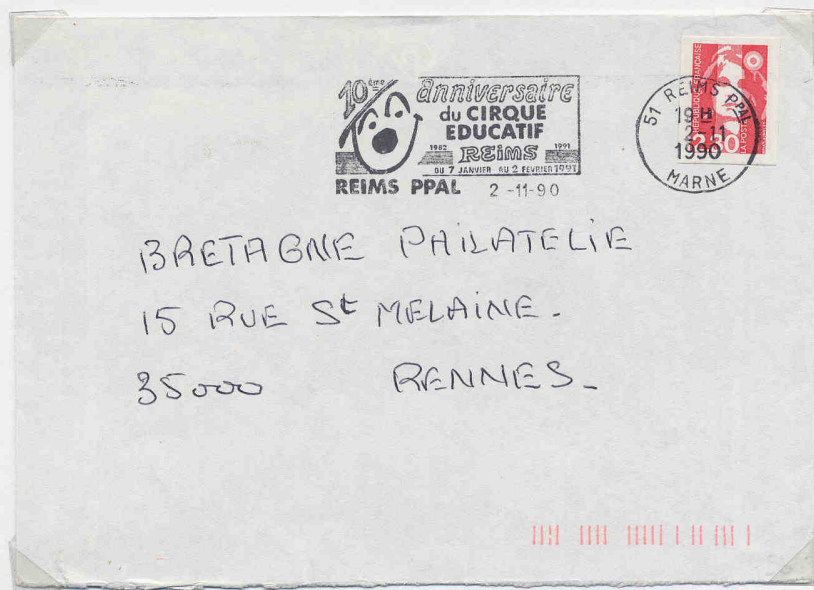 10ème anniversaire
du CIRQUE
EDUCATIF
1982 REIMS 1991
DU 7 JANVIER AU 2 FEVRIER 1991
REIMS PPAL 2 -11-90
51 REIMS PPAL
19H
2-11
1990
MARNE
REPUBLIQUE FRANCAISE
2,30
LA POSTE
BRETAGNE PHILATELIE
15 RUE St MELAINE.
35000 RENNES_